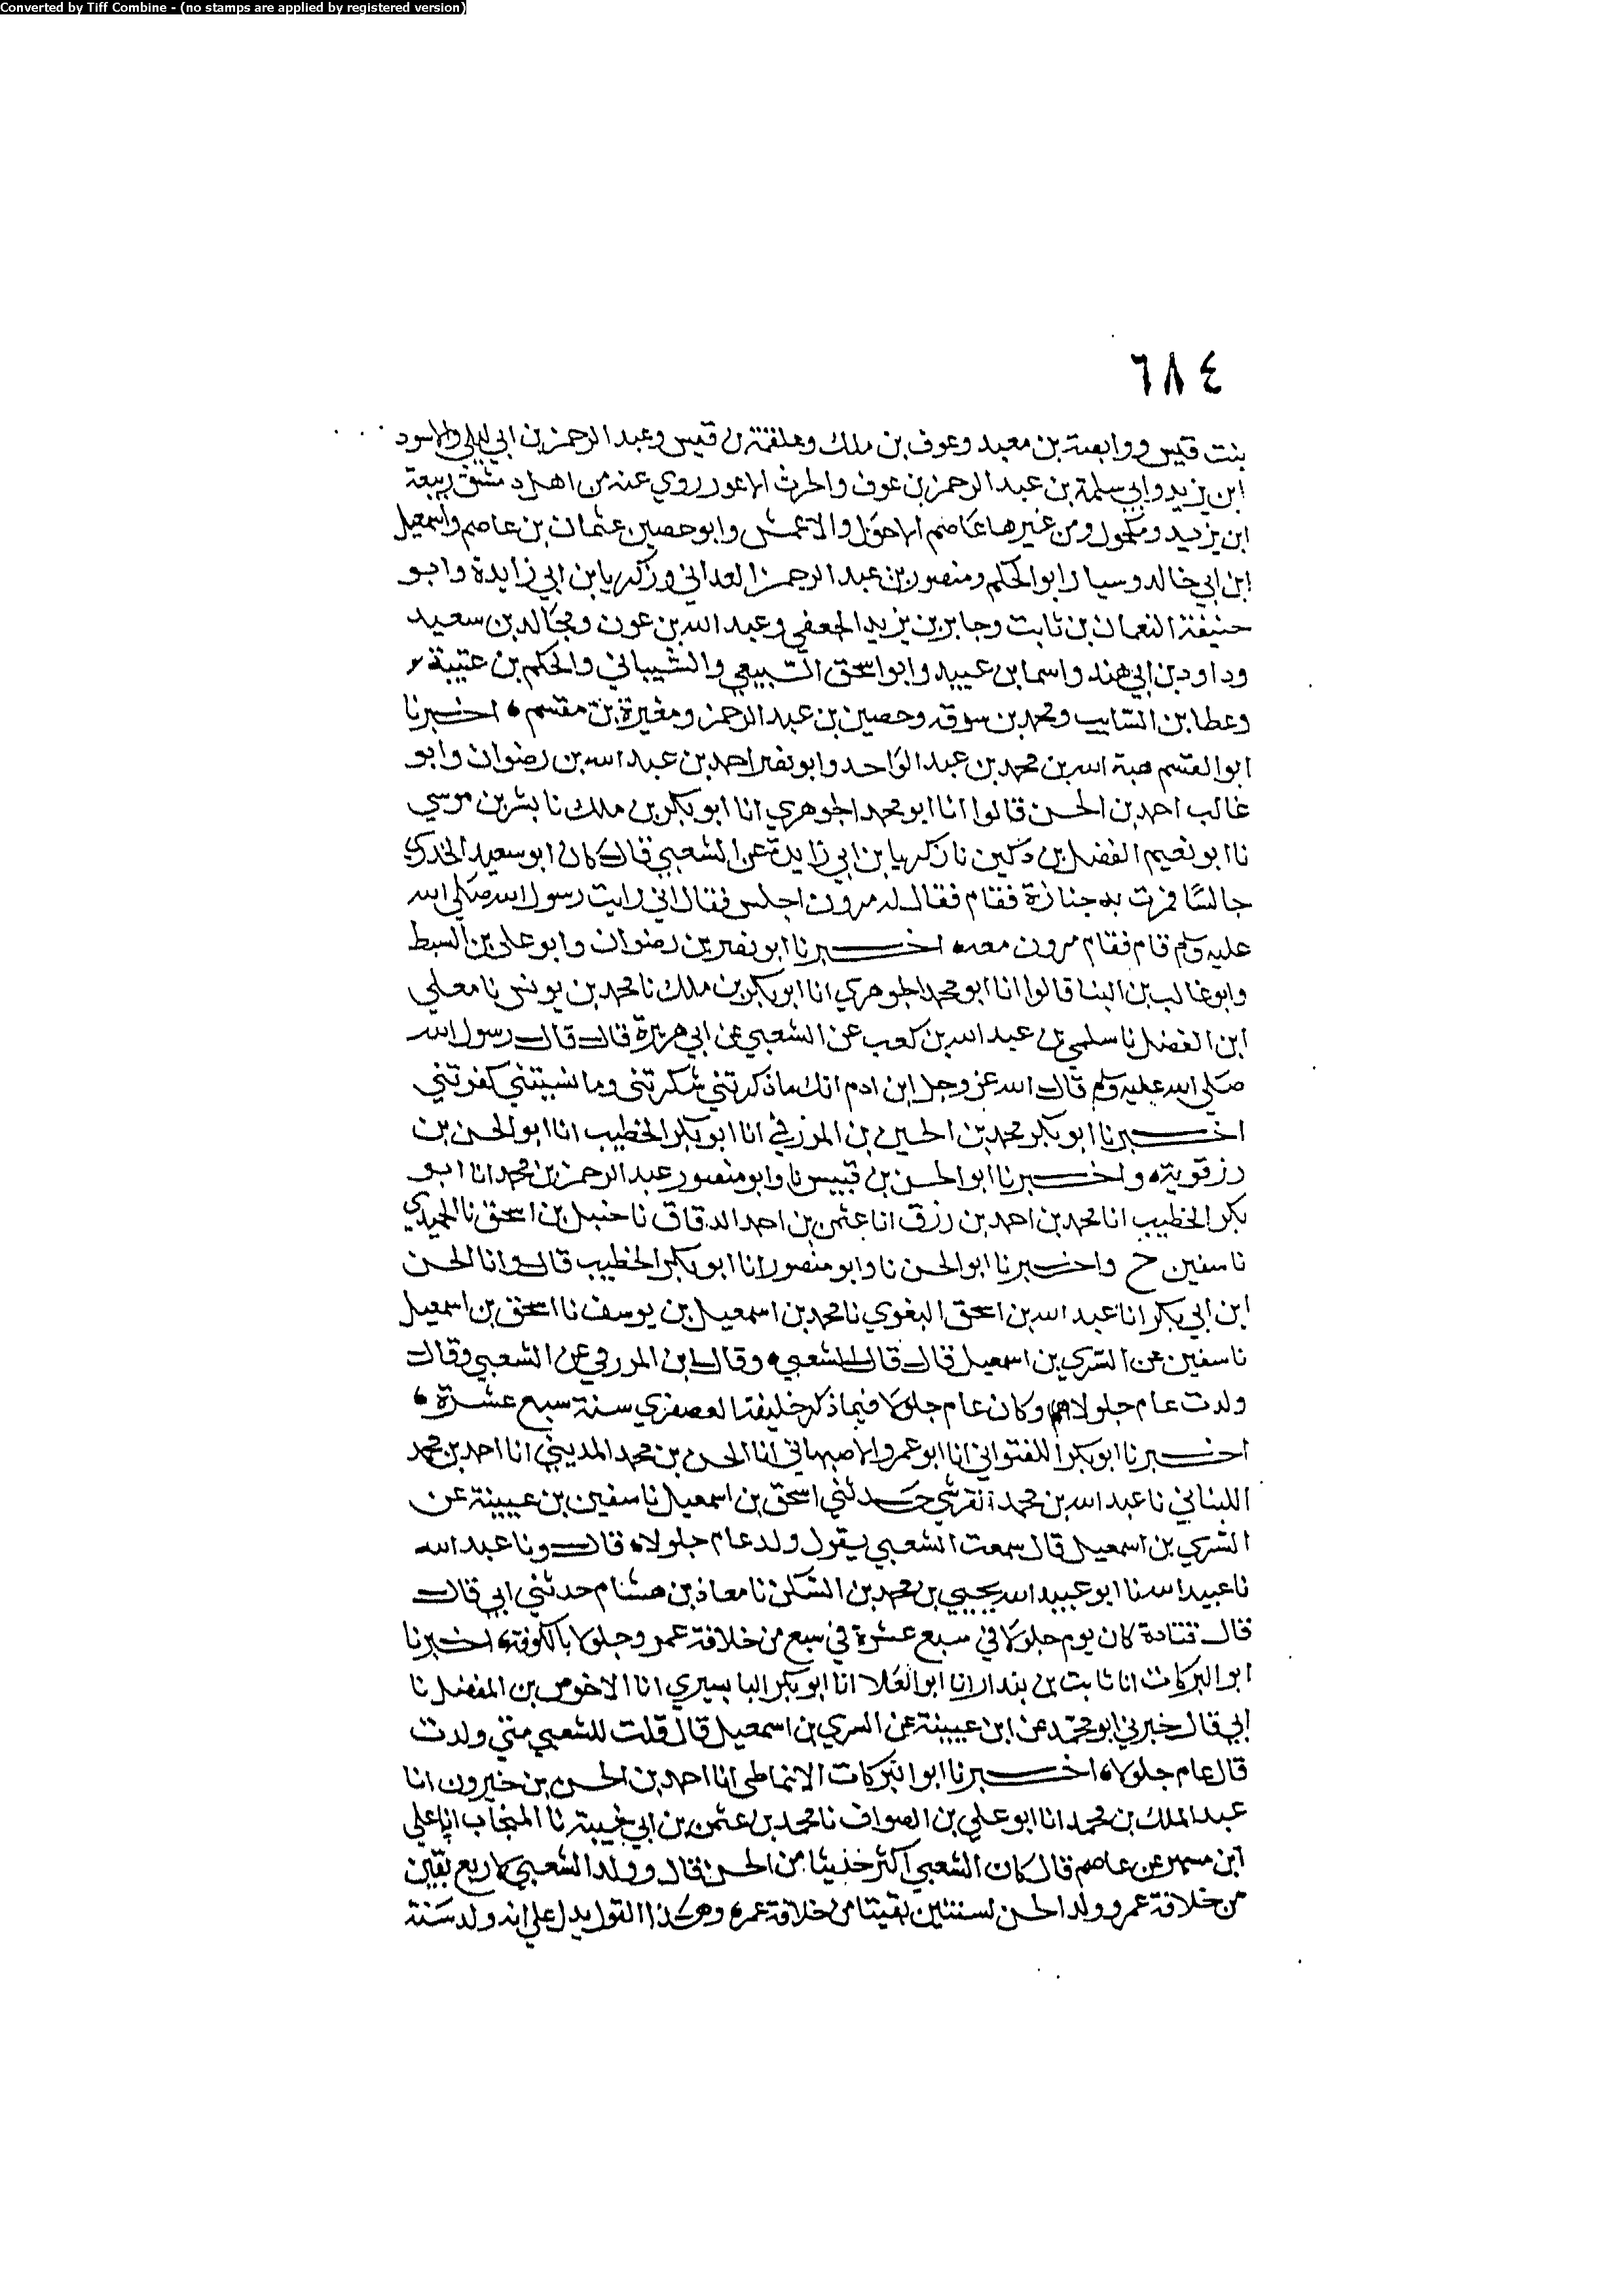 Converted by Tiff Combine - (no stamps are applied by registered version)
٦٨٤
بنت قيس ووابصة بن معبد وعوف بن ملك وعلقمة بن قيس وعبد الرحمن بن ابي ليلي والاسود
ابن يزيد وابي سلمة بن عبد الرحمن بن عوف والحرث الاعور روي عنه من اهل دمشق ربيعة
ابن يزيد ومكحول ومن غيرها عاصم الاحول والاعمش وابو حصين عثمان بن عاصم واسمعيل
ابن ابي خالد وسيار ابو الحكم ومنصور بن عبد الرحمن الغداني وزكريا بن ابي زايدة وابو
حنيفة النعمان بن ثابت وجابر بن يزيد الجعفي وعبد الله بن عون ومجالد بن سعيد
وداود بن ابي هند واسما بن عبيد وابو اسحق السبيعي والشيباني والحكم بن عتيبة
وعطا بن السايب ومحمد بن سوقه وحصين بن عبد الرحمن ومغيرة بن مقسم اخبرنا
ابو القسم هبة الله بن محمد بن عبد الواحد وابو نصر احمد بن عبد الله بن رضوان وابو
غالب احمد بن الحسن قالوا انا ابو محمد الجوهري انا ابو بكر بن ملك نا بشر بن موسي
نا ابو نعيم الفضل بن دكين نا زكريا بن ابي زايدة عن الشعبي قال كان ابو سعيد الخدري
جالسًا فمرت به جنازة فقام فقال له مرون اجلس فقال اني رايت رسول الله صلي الله
عليه وسلم قام فقام مرون معه اخبرنا ابو نصر بن رضوان وابو علي بن السبط
وابو غالب بن البنا قالوا انا ابو محمد الجوهري انا ابو بكر بن ملك نا محمد بن يونس نا معلي
ابن الفضل نا سلمي بن عبد الله بن كعب عن الشعبي عن ابي هريرة قال قال رسول الله
صلي الله عليه وسلم قال الله عز وجل ابن ادم انك ما ذكرتني شكرتني وما نسيتني كفرتني
اخبرنا ابو بكر محمد بن الحسين بن المزرفي انا ابو بكر الخطيب انا ابو الحسن بن
رزقويه واخبرنا ابو الحسن بن قبيس نا وابو منصور عبد الرحمن بن محمد انا ابو
بكر الخطيب انا محمد بن احمد بن رزق انا عثمن بن احمد الدقاق نا حنبل بن اسحق نا الحميدي
نا سفين ح واخبرنا ابو الحسن نا وابو منصور انا ابو بكر الخطيب قال وانا الحسن
ابن ابي بكر انا عبد الله بن اسحق البغوي نا محمد بن اسمعيل بن يوسف نا اسحق بن اسمعيل
نا سفين عن السري بن اسمعيل قال قال الشعبي وقال ابن المزرفي عن الشعبي وقال
ولدت عام جلولا وكان عام جلولا فيما ذكر خليفة العصفري سنة سبع عشرة
اخبرنا ابو بكر اللفتواني انا ابو عمرو الاصبهاني انا الحسن بن محمد المديني انا احمد بن محمد
اللبناني نا عبد الله بن محمد القرشي حدثني اسحق بن اسمعيل نا سفين بن عيينة عن
السري بن اسمعيل قال سمعت الشعبي يقول ولد عام جلولا قال ونا عبد الله
نا عبيد الله نا ابو عبيد الله يحيي بن محمد بن السكن نا معاذ بن هشام حدثني ابي قال
قال قتادة كان يوم جلولا في سبع عشرة في سبع من خلافة عمر وجلولا بالكوفة اخبرنا
ابو البركات انا ثابت بن بندار انا ابو العلا انا ابو بكر البابسيري انا الاخوص بن المفضل نا
ابي قال خبرني ابو محمد عن ابن عيينة عن السري بن اسمعيل قال قلت للشعبي متي ولدت
قال عام جلولا اخبرنا ابو البركات الانماطي انا احمد بن الحسن بن خيرون انا
عبد الملك بن محمد انا ابو علي بن الصواف نا محمد بن عثمن بن ابي شيبة نا المنجاب انا علي
ابن مسهر عن عاصم قال كان الشعبي اكثر حديثا من الحسن قال وولد الشعبي لاربع بقين
من خلافة عمر وولد الحسن لسنتين بقيتا من خلافة عمر وهكذا القول يدل علي انه ولد سنة